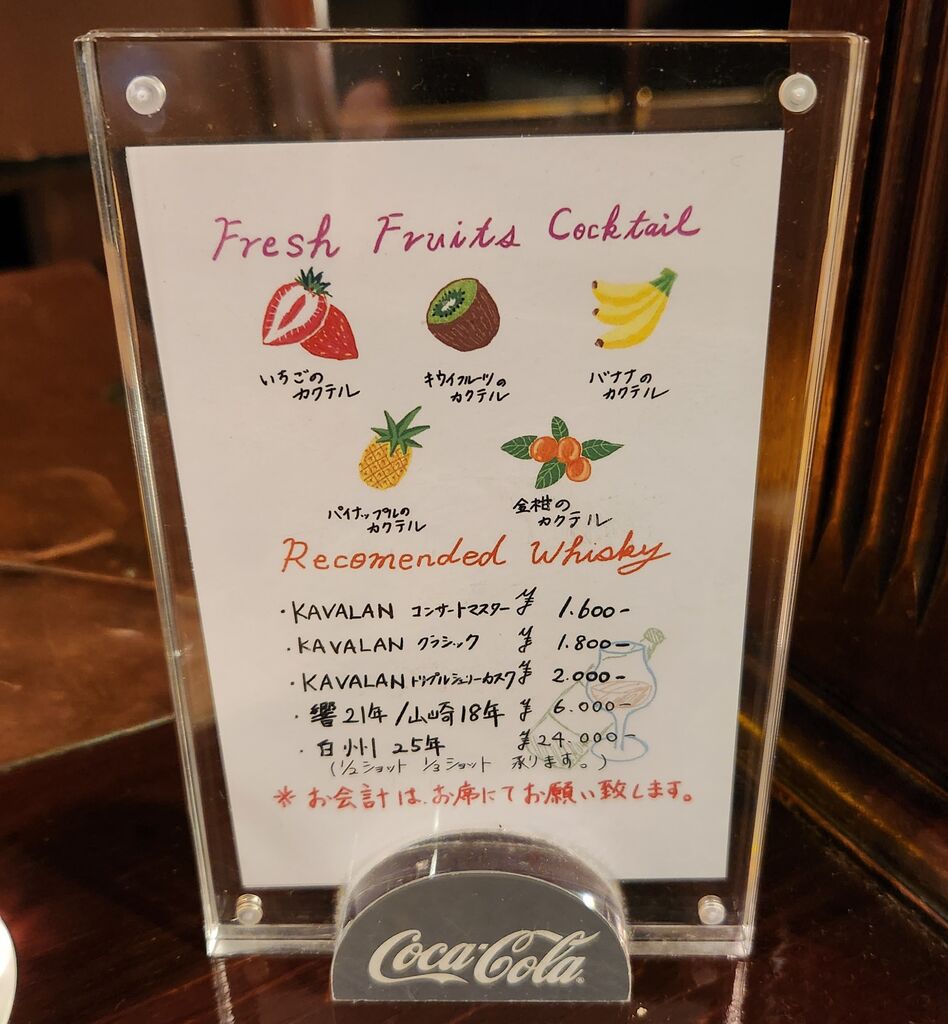 Fresh Fruits Cocktail
いちごの
カクテル
キウイフルーツの
カクテル
バナナの
カクテル
パイナップルの
カクテル
金柑の
カクテル
Recomended Whisky
・KAVALAN コンサートマスター ¥ 1.600-
・KAVALAN クラシック ¥ 1.800-
・KAVALAN トリプルシェリーカスク ¥ 2.000-
・響21年/山崎18年 ¥ 6.000-
・白州 25年 ¥24.000-
(1/2ショット 1/3ショット 承ります。)
※お会計は、お席にてお願い致します。
Coca-Cola